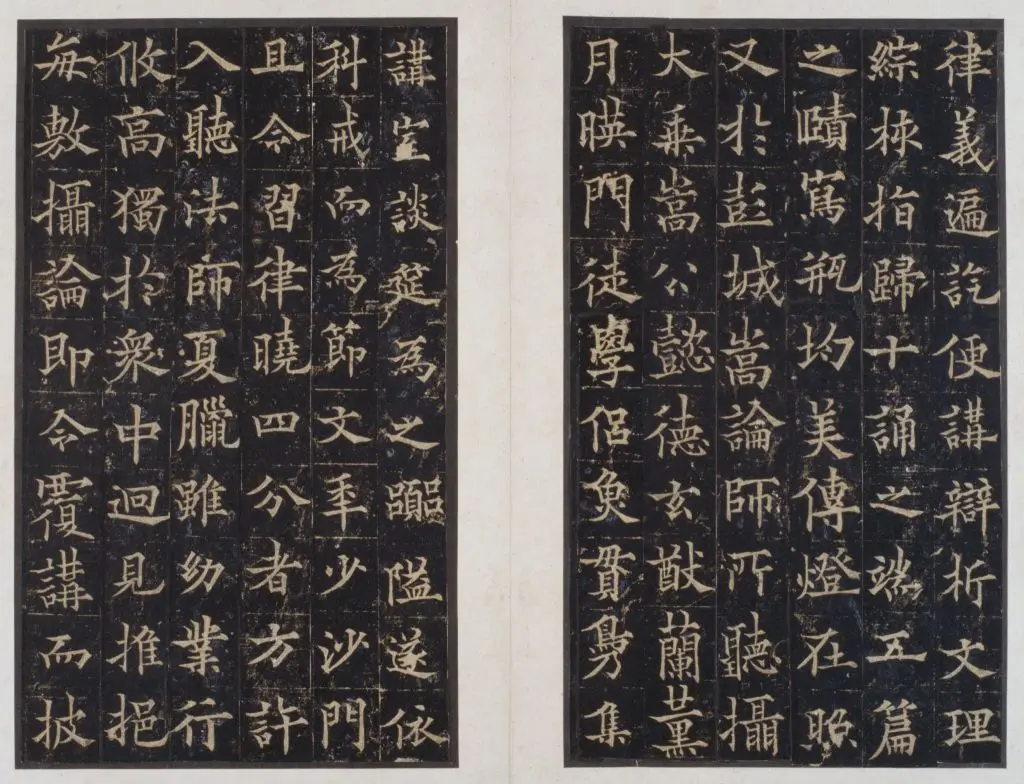 律義遍訖便講辯析文理
綜指歸十誦之端五篇
之賾寫瓶均美傳燈在照
又於彭城嵩論師所聽攝
大乘嵩公懿德玄猷蘭薰
月暎門徒學侶魚貫鳧集
講室談筵為之嚻隘遂依
科戒而為節文年少沙門
且令習律曉四分者方許
入聽法師夏臘雖幼業行
攸高獨於衆中迥見推挹
每敷攝論即令覆講而披